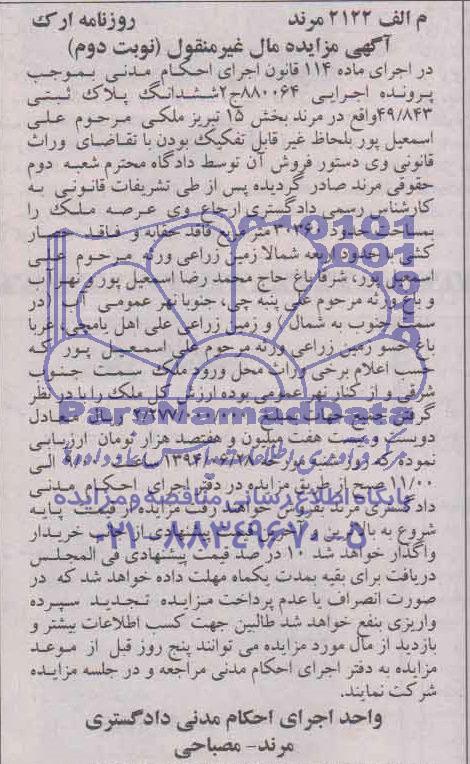 م الف ۲۱۲۲ مرند روزنامه ارک
آگهی مزایده مال غیرمنقول (نوبت دوم)
در اجرای ماده ۱۱۴ قانون اجرای احکام مدنی بموجب
پرونده اجرایی ۸۸۰۰۶۴ج۲ششدانگ پلاک ثبتی
۴۹/۸۴۳واقع در مرند بخش ۱۵ تبریز ملکی مرحوم علی
اسمعیل پور بلحاظ غیر قابل تفکیک بودن با تقاضای وراث
قانونی وی دستور فروش آن توسط دادگاه محترم شعبه دوم
حقوقی مرند صادر گردیده پس از طی تشریفات قانونی به
کارشناس رسمی دادگستری ارجاع وی عرصه ملک را
بمساحت حدود ۳۰۳۶۰ متر مربع فاقد حقابه و فاقد حصار
کشی با حدود اربعه شمالا زمین زراعی ورثه مرحوم علی
اسمعیل پور، شرقا باغ حاج محمد رضا اسمعیل پور و نهر آب
و باغ ورثه مرحوم علی پنبه چی، جنوبا نهر عمومی آب (در
سمت جنوب به شمال) و زمین زراعی علی اهل یامچی، غربا
باغ خسو زمین زراعی ورثه مرحوم علی اسمعیل پور که
حسب اعلام برخی وراث محل ورود ملک سمت جنوب
شرقی و از کنار نهر عمومی بوده ارزش کل ملک را با در نظر
گرفتن جمیع جهات مبلغ ۲/۲۷۷/۰۰۰/۰۰۰ ریال معادل
دویست و بیست هفت میلیون و هفتصد هزار تومان ارزیابی
نموده که روز شنبه مورخه ۱۳۹۴/۰۶/۲۸ ساعت ۹/۰۰ الی
۱۱/۰۰ صبح از طریق مزایده در دفتر اجرای احکام مدنی
دادگستری مرند بفروش خواهد رفت مزایده از قیمت پایه
شروع به بالاترین و آخرین قیمت پیشنهادی از جانب خریدار
واگذار خواهد شد ۱۰ در صد قیمت پیشنهادی فی المجلس
دریافت برای بقیه بمدت یکماه مهلت داده خواهد شد که در
صورت انصراف یا عدم پرداخت مزایده تجدید سپرده
واریزی بنفع خواهد شد طالبین جهت کسب اطلاعات بیشتر و
بازدید از مال مورد مزایده می توانند پنج روز قبل از موعد
مزایده به دفتر اجرای احکام مدنی مراجعه و در جلسه مزایده
شرکت نمایند.
واحد اجرای احکام مدنی دادگستری
مرند- مصباحی
ParsNamadData
پایگاه اطلاع رسانی مناقصه و مزایده
۰۲۱-۸۸۳۴۹۶۷۰-۵